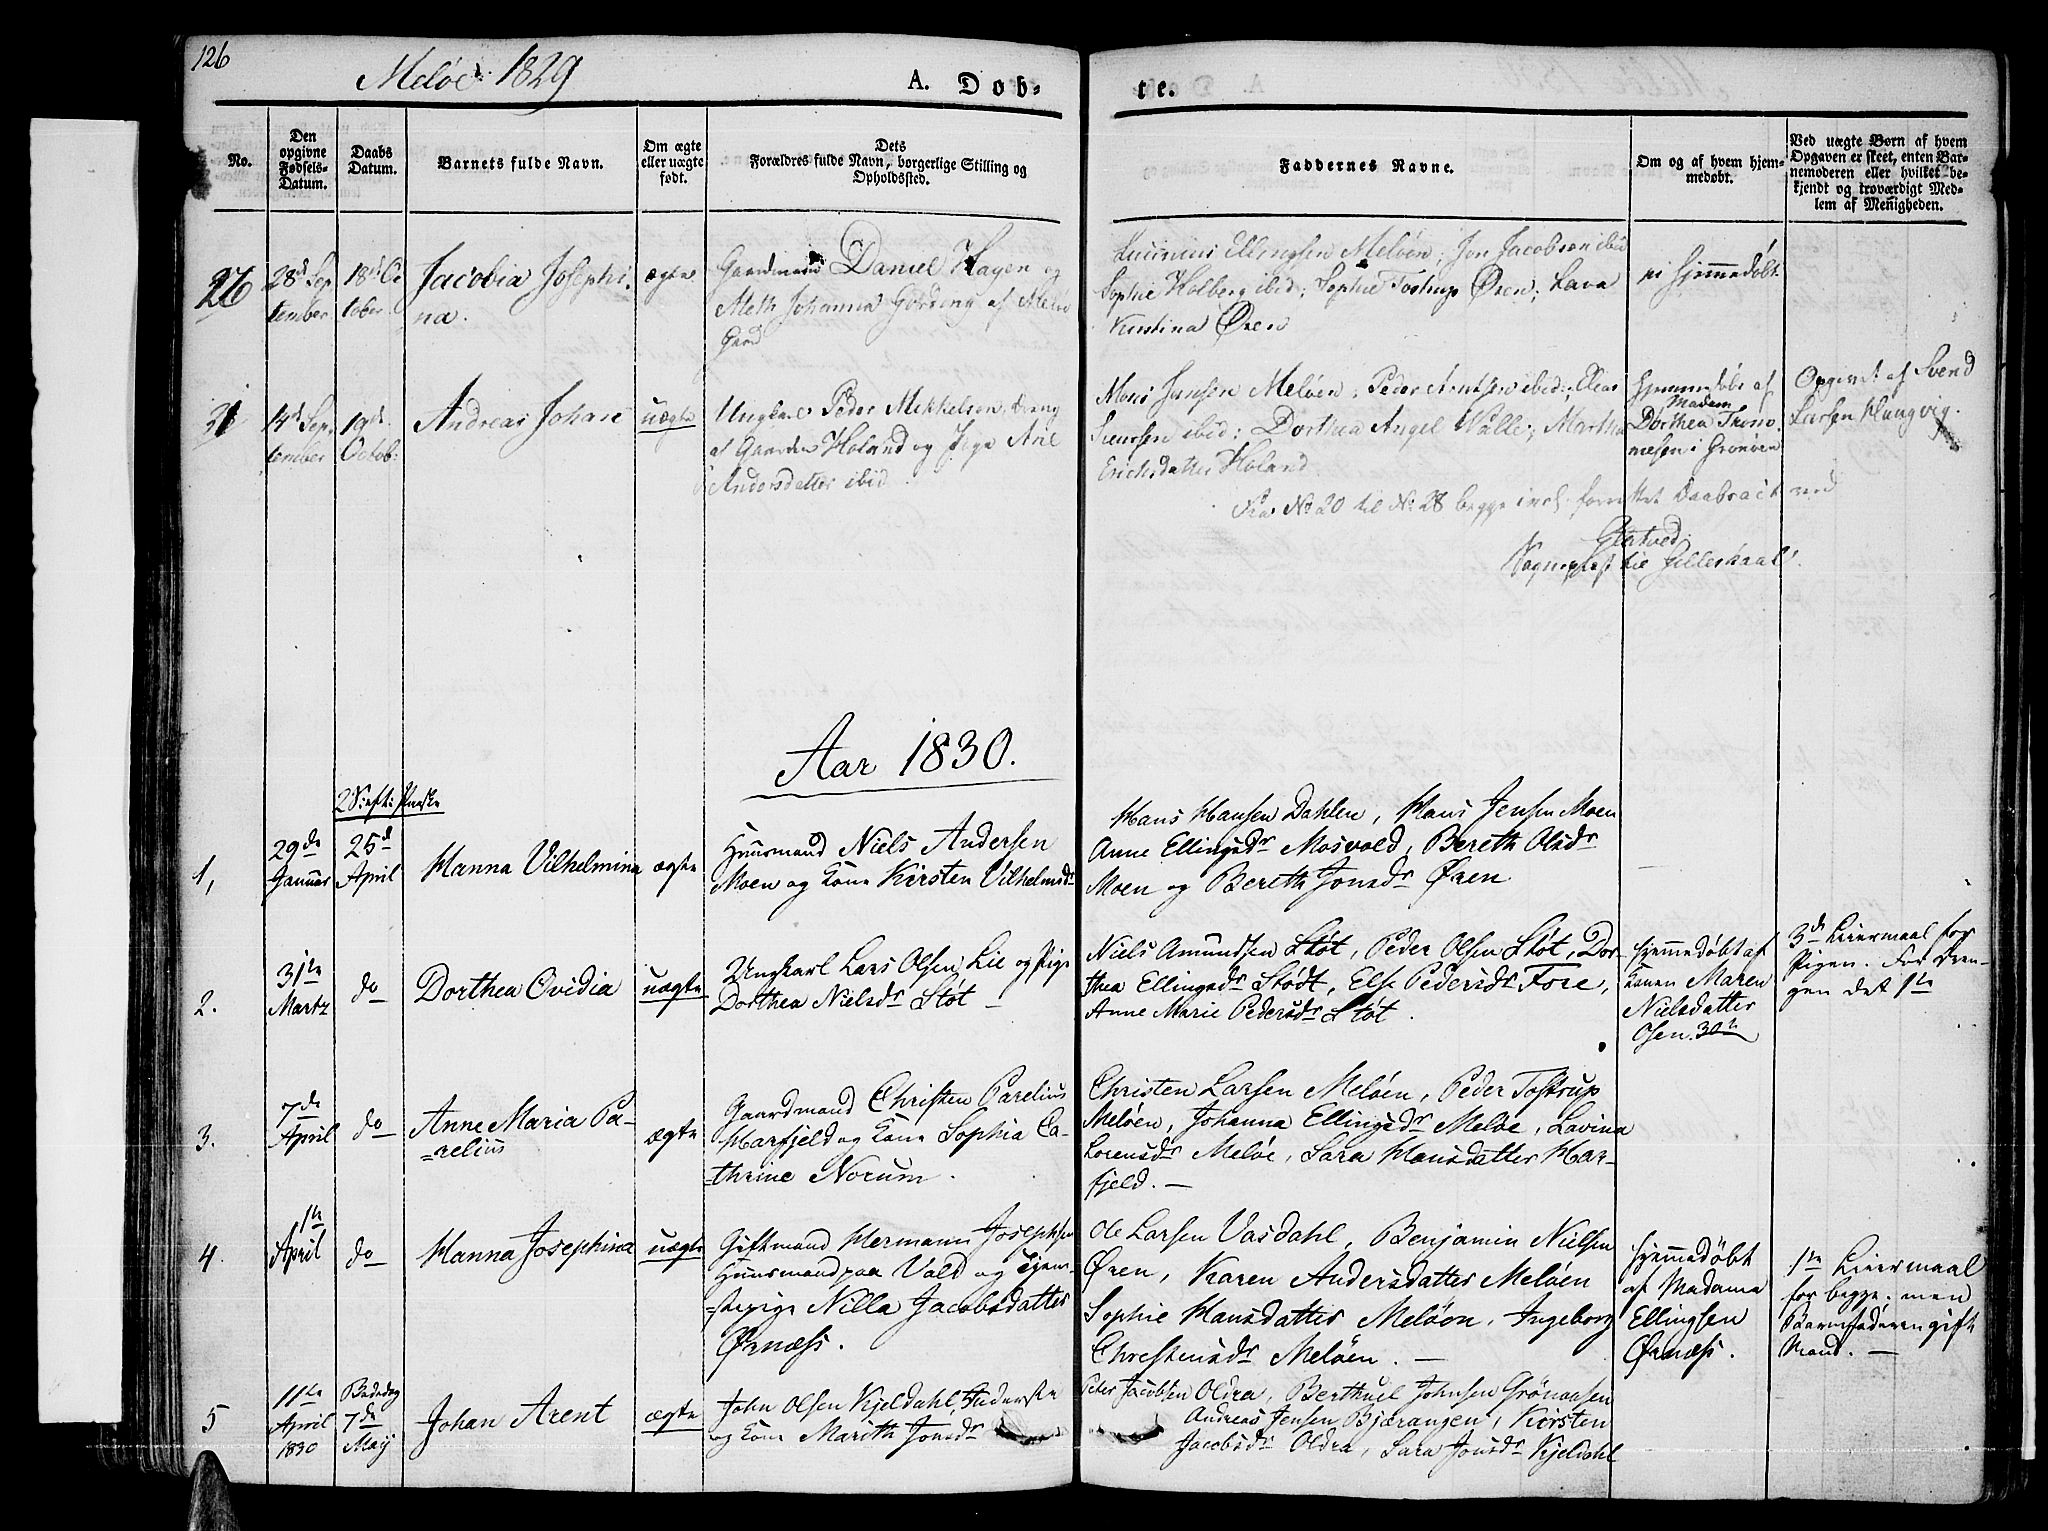 126
Meløe 1829
A. Døb-
te.
No.
Den
opgivne
Fødsels-
Datum.
Daabs
Datum.
Barnets fulde Navn.
Om ægte
eller uægte
født.
Dets
Forældres fulde Navn, borgerlige Stilling og
Opholdssted.
Faddernes Navne.
Om og af hvem hjem-
medøbt.
Ved uægte Børn af hvem
Opgaven er skeet, enten Bar-
nemoderen eller hvilket be-
kjendt og troværdigt Med-
lem af Menigheden.
26
28d Sep
tember
18d Oc
tober
Jacobia Josephi-
na.
ægte
Gaardmand Daniel Hagen og
Meth Johanna Gørding af Meløe
Gaard
Ellingsen Meløen; Jon Jacobsen ibid
Sophie Holberg ibid; Sophie Tostrup Øren; Lava
Kirstina Øren
ei hjemmedøbt
14d Sep
tember
19d
Octob:
Andreas Johan
uægte
Ungkarl Peder Mikkelsen, dreng
af Gaarden Holand og Pige Ane
Andersdatter ibid
Mons Jensen Meløen; Peder Arntsen ibid;
Siursen ibid; Dorthea Angel Walle; Martha
Erichsdatter Holand
Hjemmedøbt af
Madam
Dorthea Thom-
mesen i Grønøen
Opgivet af Svend
Larsen Haugvig.
Fra No 20 til No 28 begge incl. forrettet Daabsact ved
Sognepræst til Gilleskaal.
Aar 1830.
2 S: eft: Paaske
1,
29de
Januar
25d
April
Hanna Vilhelmina
ægte
Huusmand Niels Andersen
Moen og Kone Kirsten Vilhelmsdr
Hans Hansen Dahlen, Hans Jensen Moen
Anne Ellingsdr Mosvold, Bereth Olsdr
Moen og Bereth Jonsdr Øren
2.
31te
Martz
do
Dorthea Ovidia
uægte
Ungkarl Lars Olsen Lie og Pige
Dorthea Nielsdr Støt —
Niels Amundsen Støt, Peder Olsen Støt, Dor-
thea Ellingsdr Stødt, Else Pedersdr Fore,
Anne Marie Pedersdr Støt.
hjemmedøbt af
Konen Maren
Nielsdatter
Osen.
3d Leiermaal for
Pigen. For Dren-
gen det 1te
3.
7de
April
do
Anne Maria Pa-
=relius
ægte
Gaardmand Christen Parelius
Harfjeld og Kone Sophia Ca-
=thrine Norum.
Christen Larsen Meløen, Peder Tostrup
Meløen, Johanna Ellingsdr Meløe, Lavina
Lorensdr Meløe, Sara Hansdatter Har-
fjeld. —
4.
1te
April
do
Hanna Josephina
uægte
Giftmand Hermann Josephsen
Huusmand paa Vold og Tjene-
=stepige Nilla Jacobsdatter
Ørnæss.
Ole Larsen Vasdahl, Benjamin Nielsen
Øren, Karen Andersdatter Meløen
Sophie Hansdatter Meløen, Ingeborg
Christensdr Meløen. —
hjemmedøbt
af Madame
Ellingsen
Ørnæss.
1te Leiermaal
for begge. men
Barnefaderen gift
Mand. —
5
11te
April
1830
Bededag
7de
Maij
Johan Arent
ægte
John Olsen Kjeldahl, Inderste
og Kone Marith Jonsdr
Peter Jacobsen Oldra, Berthuel Johnsen Grønaasen
Andreas Jensen Bjærangen, Kirsten
Jacobsdr Oldra, Sara Jonsdr Kjeldahl